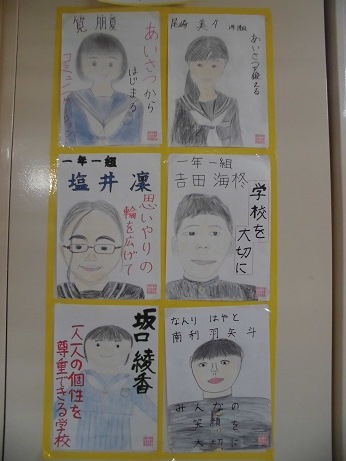 筧 朋夏
あいさつから
はじまる
コミュニ
尾崎 美々
あいさつを鍛える
一年一組
塩井 凜
思いやりの
輪を広げて
一年一組
吉田 海柊
学校を
大切に
坂口 綾香
一人一人の個性を
尊重できる学校
なんり はやと
南利 羽矢斗
みんなの
笑顔を
大切に